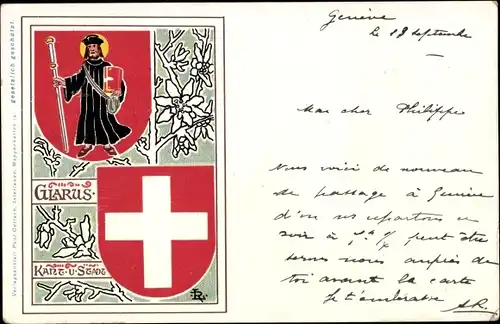 Verlagsanstalt Paul Gerlach, Interlaken, Wappenkarten
gesetzlich geschützt.
GLARUS
KANT. U. STADT
Genève
le 18 septembre
Mon cher Philippe
Nous voici de nouveau
de passage à Genève
d'où ns repartons ce
soir à peut être
serons nous auprès de
toi avant la carte
Je t'embrasse AR.